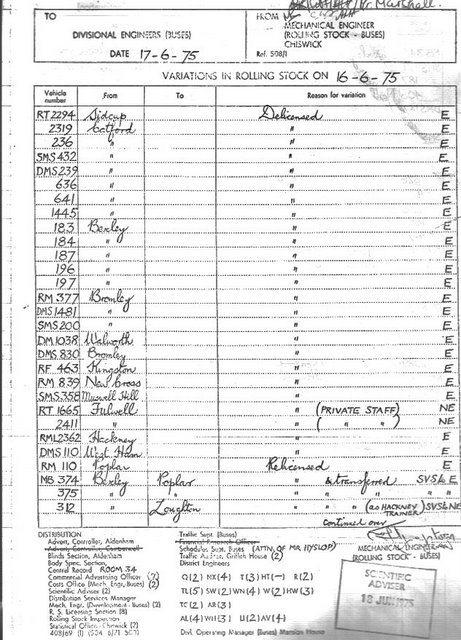 TO
DIVISIONAL ENGINEERS (BUSES)
DATE 17-6-75
Mr Marshall.
FROM
MECHANICAL ENGINEER
(ROLLING STOCK - BUSES)
CHISWICK
Ref. 508/1
VARIATIONS IN ROLLING STOCK ON 16-6-75
Vehicle number From To Reason for variation
RT 2294 Sidcup Delicensed E
2319 Catford " " E
236 " " E
SMS 432 " " E
DMS 239 " " E
636 " " E
641 " " E
1445 " " E
183 Bexley " E
184 " " E
187 " " E
196 " " E
197 " " E
RM 377 Bromley " E
DMS 1481 " " E
SMS 200 " " E
DM 1038 Walworth " E
DMS 830 Bromley " E
RF 463 Kingston " E
RM 839 New Cross " E
SMS 358 Muswell Hill " E
RT 1665 Fulwell " (PRIVATE STAFF) NE
2411 " " ( " " ) NE
RML 2362 Hackney " E
DMS 110 West Ham " E
RM 110 Poplar Relicensed E
MB 374 Bexley Poplar " & transferred SVS & E
375 " " " " " E
312 " Loughton " " " (as HACKNEY TRAINER) SVS & NE
continued over
DISTRIBUTION
Advert. Controller, Aldenham
Advert. Controller, Camberwell
Blinds Section, Aldenham
Body Spec. Section,
Central Record ROOM 34
Commercial Advertising Officer (7)
Costs Office (Mech. Engr. Buses) (2)
Scientific Adviser (2)
Distribution Services Manager
Mech. Engr. (Development - Buses) (2)
R. S. Licensing Section (8)
Rolling Stock Inspection
Statistical Office - Chiswick (7)
Traffic Supt. (Buses)
Financial Research Officer
Schedules Supt. Buses (ATTN. OF MR HYSLOP)
Traffic Auditor, Griffith House (2)
District Engineers
Q(2) NX(4) T(3) HT(-) R(2)
TL(5) SW(2) WN(4) W(2) HW(3)
TC(2) AR(3)
AL(4) WH(3) U(2) AV(4)
Divl. Operating Manager (Buses) Mansion House
MECHANICAL ENGINEER
(ROLLING STOCK - BUSES)
SCIENTIFIC
ADVISER
18 JUN 1975